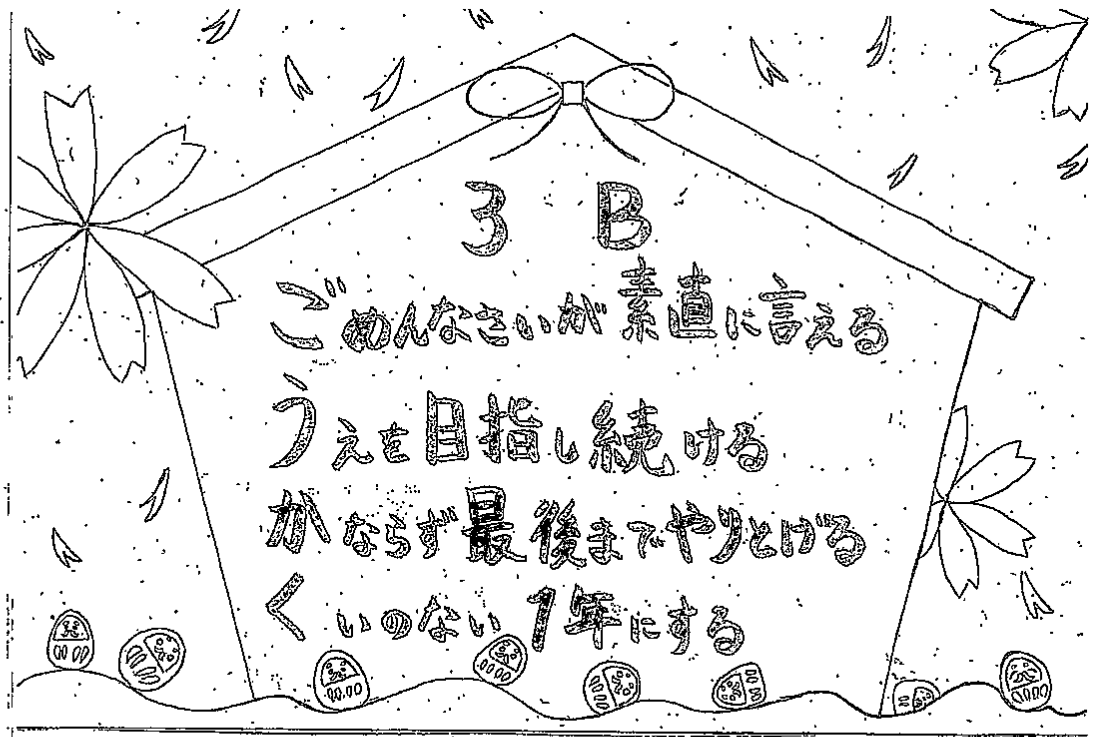 3 B
ごめんなさいが素直に言える
うえを目指し続ける
かならず最後までやりとげる
くいのない1年にする